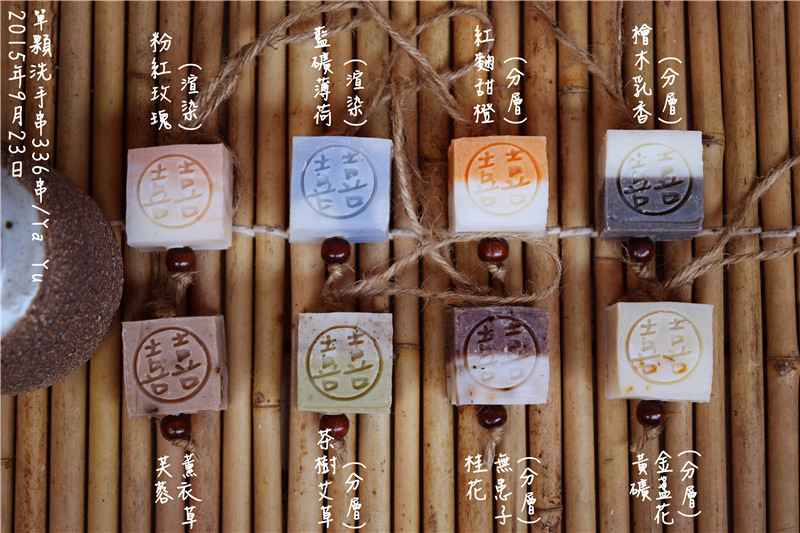 單顆洗手串336串/Ya Yu
2015年9月23日
粉紅玫瑰
(渲染)
藍礦薄荷
(渲染)
紅麴甜橙
(分層)
檜木乳香
(分層)
囍
囍
囍
囍
囍
囍
囍
囍
薰衣草
芙蓉
茶樹艾草
(分層)
(分層)
無患子
桂花
(分層)
金盞花
黃礦